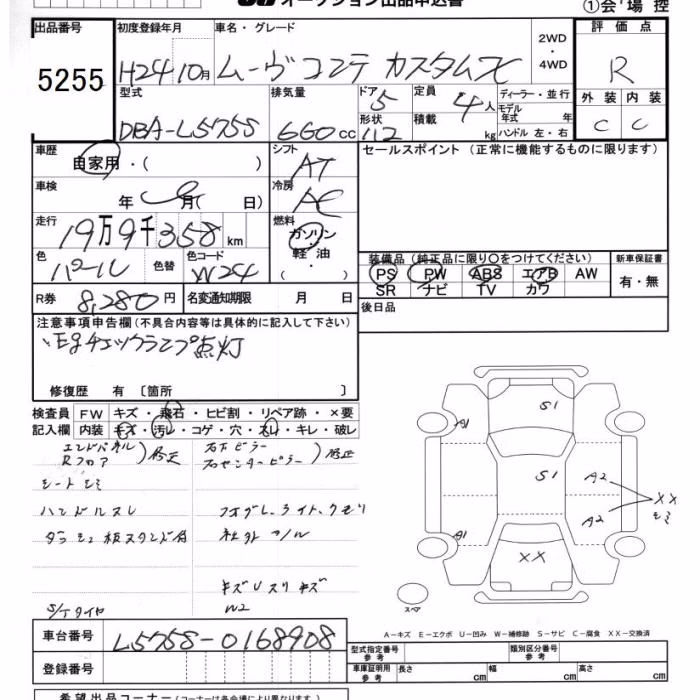 オークション出品申込書
①会場控
出品番号
5255
初度登録年月
H24 10月
車名・グレード
ムーヴ コンテ カスタム X
2WD・4WD
評価点
R
外装 内装
C C
型式
DBA-L575S
排気量
660 cc
ドア 5
形状
112
定員
4人
積載 kg
ディーラー・並行
モデル年式 年式
ハンドル 左・右
車歴
自家用・( )
シフト
AT
セールスポイント (正常に機能するものに限ります)
車検
年 月( 日)
冷房
AC
走行
19万9千358 km
燃料
ガソリン・軽油・( )
色
パール
色替
色コード
W24
装備品 (純正品に限り○をつけてください)
PS PW ABS エアB AW
SR ナビ TV カワ
新車保証書
有・無
R券 8,280円
名変通知期限 月 日
後日品
注意事項申告欄 (不具合内容等は具体的に記入して下さい)
・Egチェックランプ点灯
修復歴 有 〔箇所 〕
検査員記入欄
FW キズ・飛石・ヒビ割・リペア跡・×要
内装 キズ・汚レ・コゲ・穴・スレ・キレ・破レ
エンドパネル
Rフロア
)修正
右Fピラー
右センターピラー
)修正
シートシミ
ハンドルスレ
フォグL、ライト、クモリ
ダッシュ板スタンド付
社外マフ
キズUスリキズ
W2
S/Tタイヤ
A1
S1
S1
A2
A2
XX
シミ
A1
XX
スペア
A-キズ E-エクボ U-凹み W-補修跡 S-サビ C-腐食 XX-交換済
車台番号
L575S-0168908
登録番号
型式指定番号 参考
類別区分番号 参考
車庫証明用 参考
長さ cm
幅 cm
高さ cm
希望出品コーナー